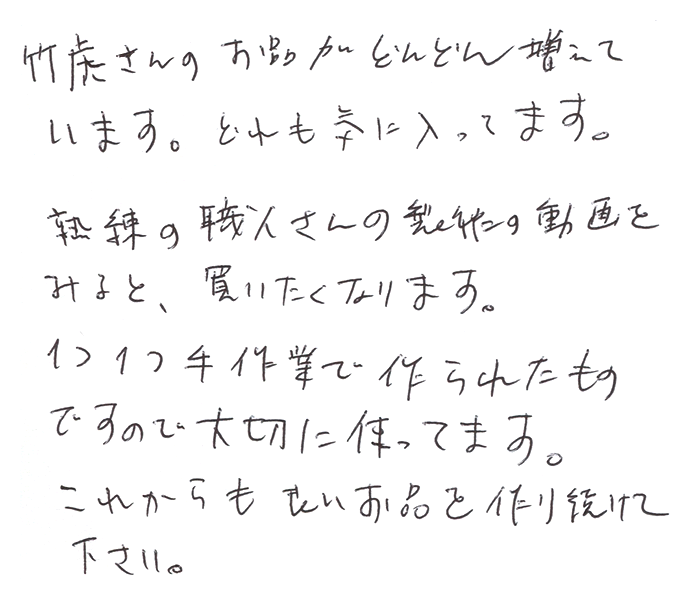 竹虎さんのお品がどんどん増えて
います。どれも気に入ってます。
熟練の職人さんの製作の動画を
みると、買いたくなります。
1つ1つ手作業で作られたもの
ですので大切に使ってます。
これからも良いお品を作り続けて
下さい。